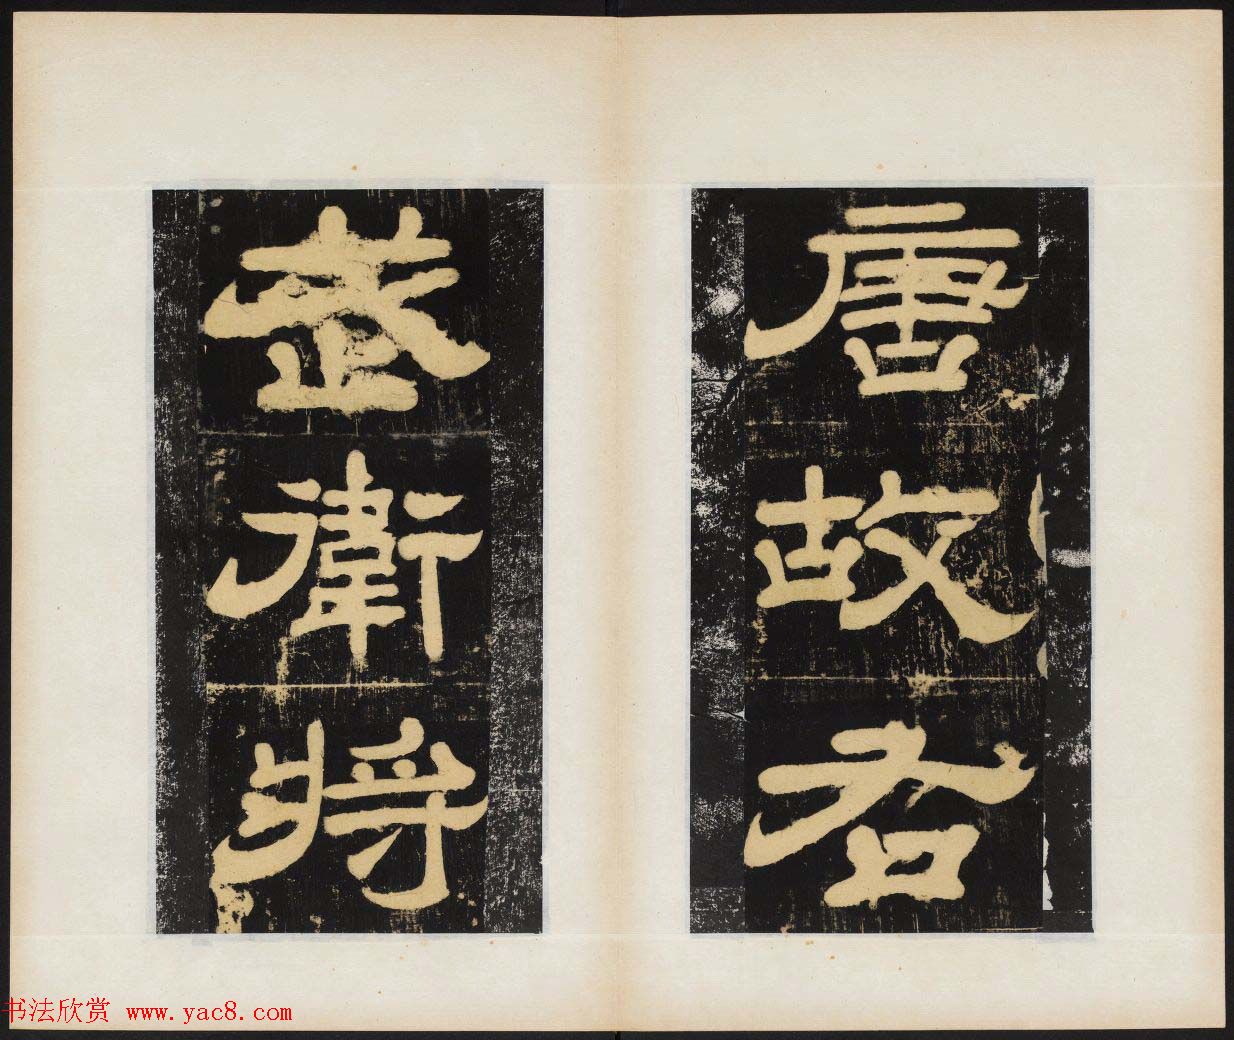 唐故右
武衛將
书法欣赏 www.yac8.com